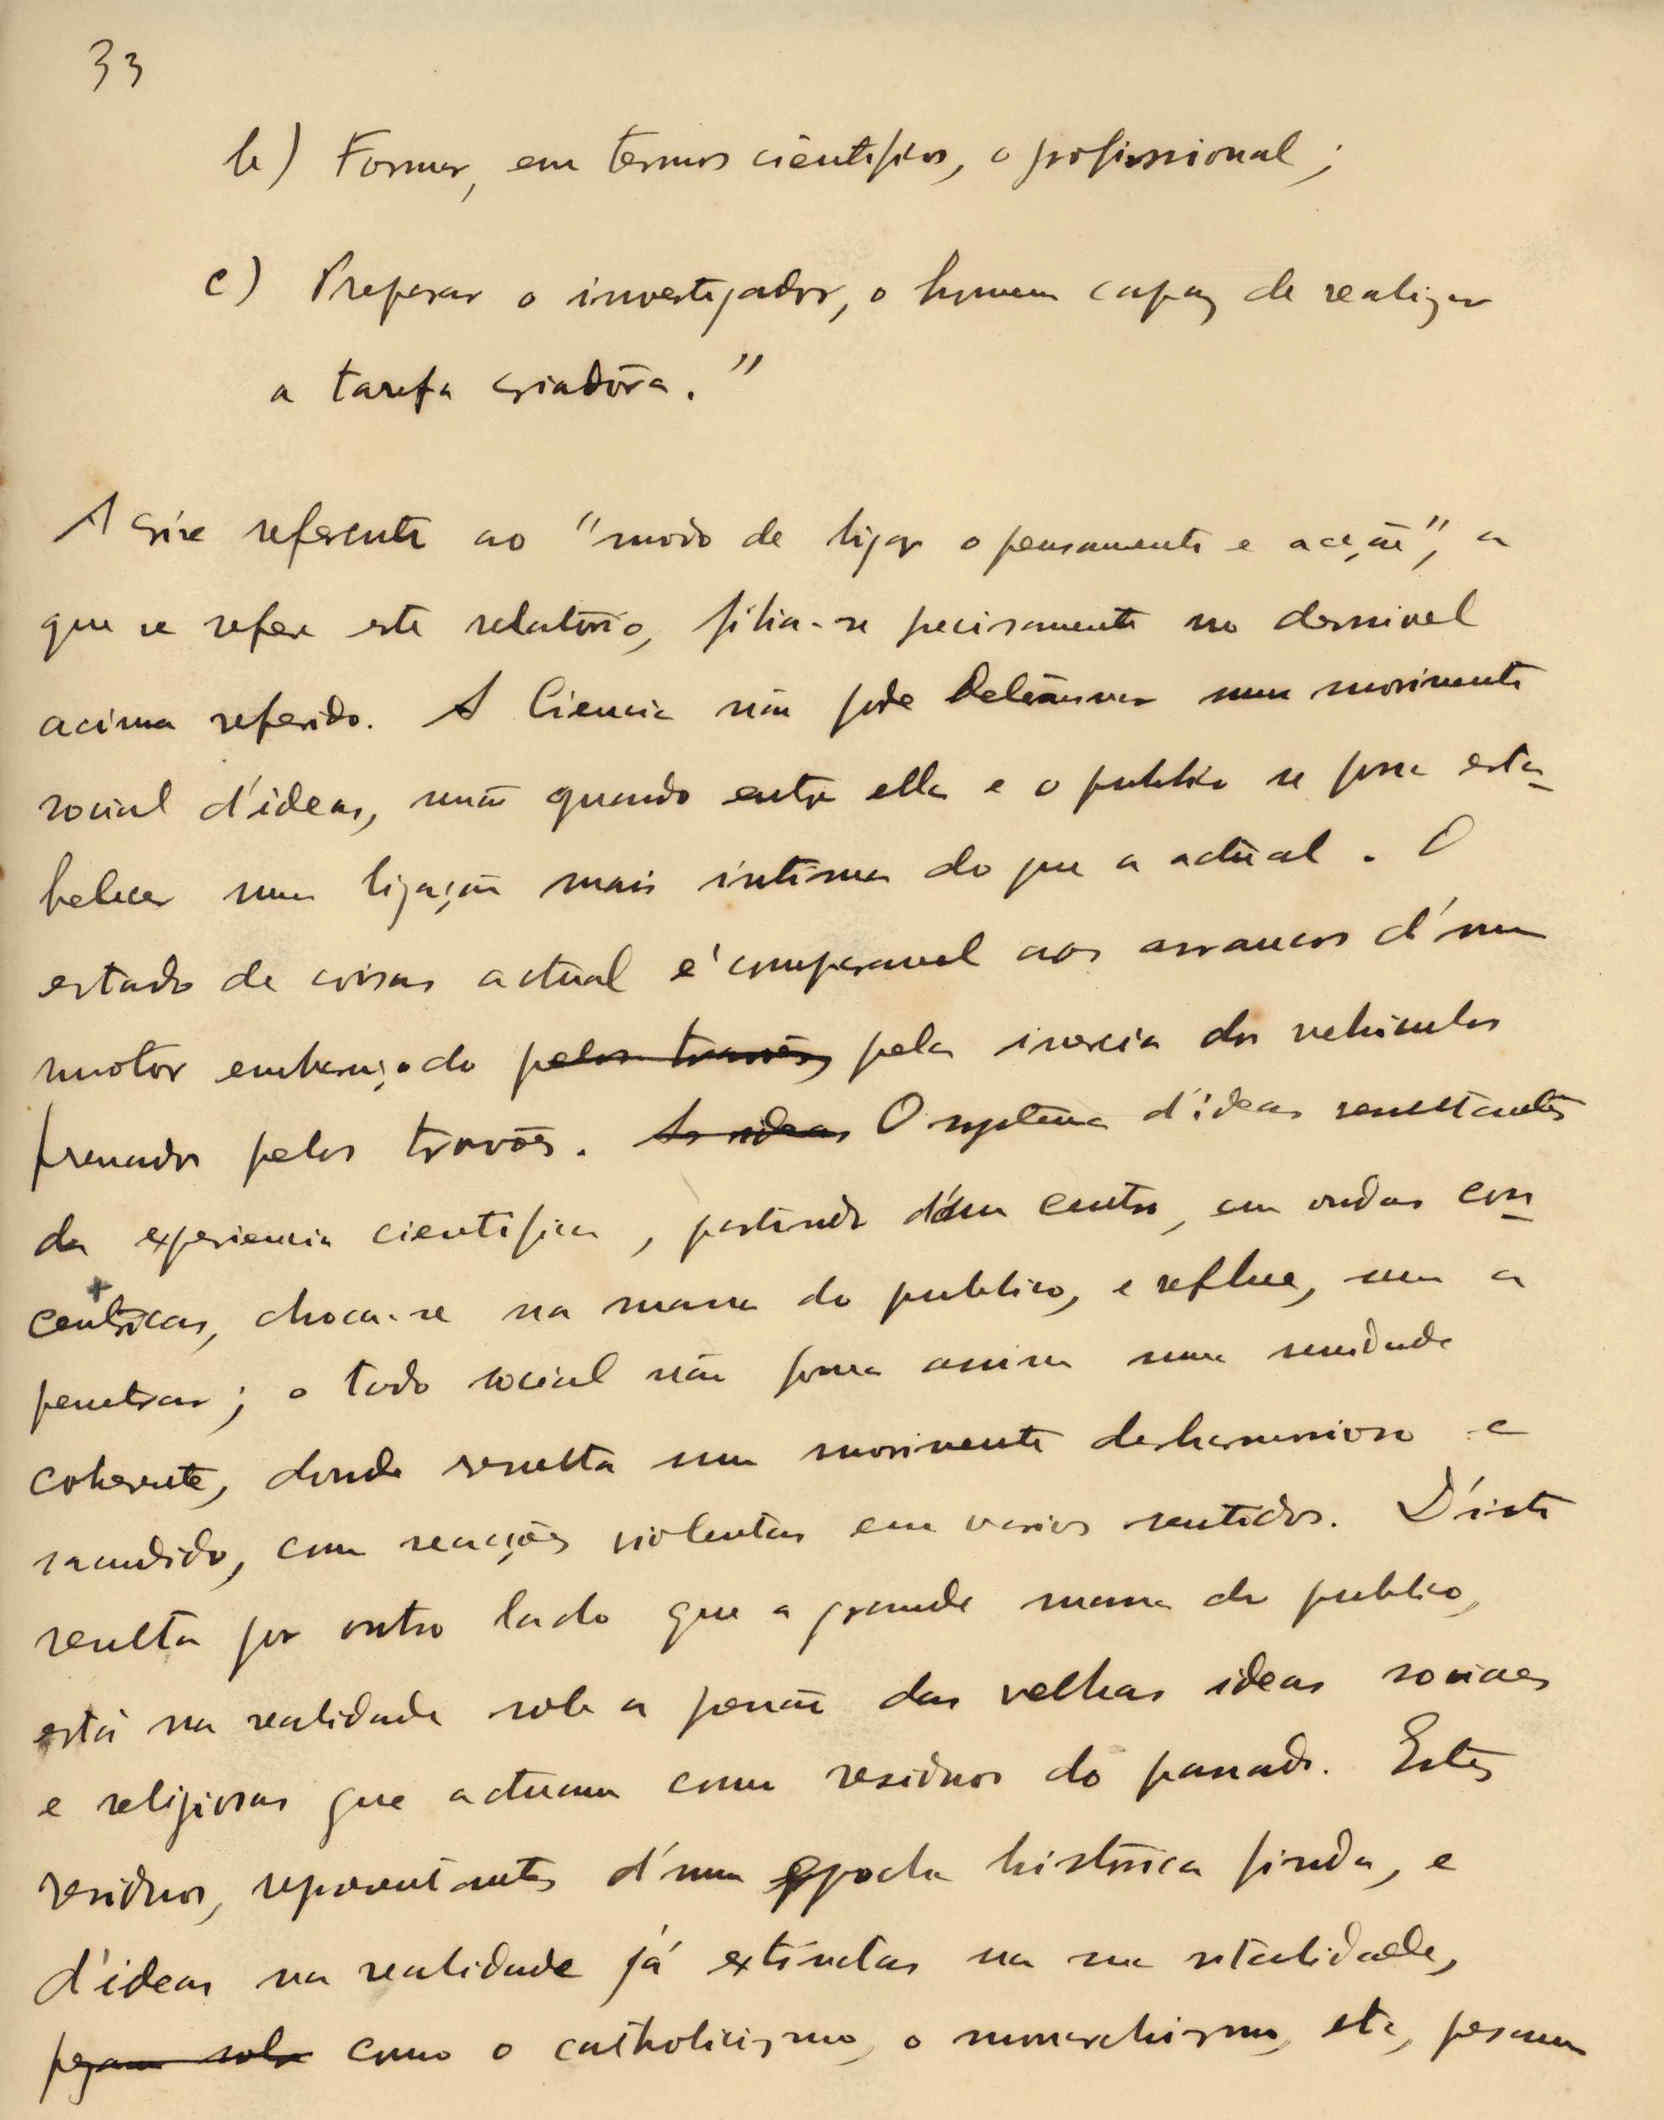 33
b) Formar, em termos cientificos, o profissional;
c) Preparar o investigador, o homem capaz de realizar
a tarefa criadôra."
A crise referente ao "modo de ligar o pensamento e acção", a
que se refere este relatório, filia-se precisamente no desnivel
acima referido. A Ciencia não pode num movimento
social d'ideas, senão quando entre ella e o publico se possa esta-
belecer uma ligação mais intima do que a actual. O
estado de coisas actual é comparavel aos arrancos d'um
motor embaraçado pelos travões pela inercia dos vehiculos
frenados pelos travões. As ideas O systema d'ideas resultantes
da experiencia cientifica, partindo d'um centro, em ondas con-
centricas, choca-se na massa do publico, e reflue, sem a
penetrar; o todo social não forma assim uma unidade
coherente, donde resulta um movimento desharmonioso e
sacudido, com reacções violentas em varios sentidos. D'isto
resulta por outro lado que a grande massa do publico,
está na realidade sob a pressão das velhas ideas sociaes
e religiosas que actuam como residuos do passado. Estes
residuos, representantes d'uma epocha histórica finda, e
d'ideas na realidade já extinctas na sua vitalidade,
pesam sobre como o catholicismo, o monarchismo, etc, pesam